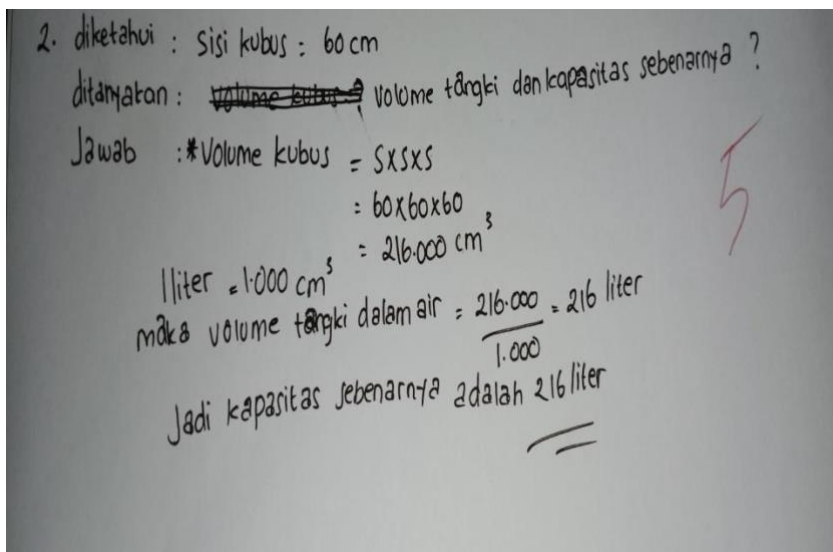 2. diketahui : Sisi kubus : 60 cm
ditanyakan : volume kubus ? Volume tangki dan kapasitas sebenarnya ?
Jawab : *Volume kubus = SxSxS
= 60x60x60
= 216.000 cm³
1 liter = 1.000 cm³
maka volume tangki dalam air = 216.000 / 1.000 = 216 liter
Jadi kapasitas sebenarnya adalah 216 liter
5